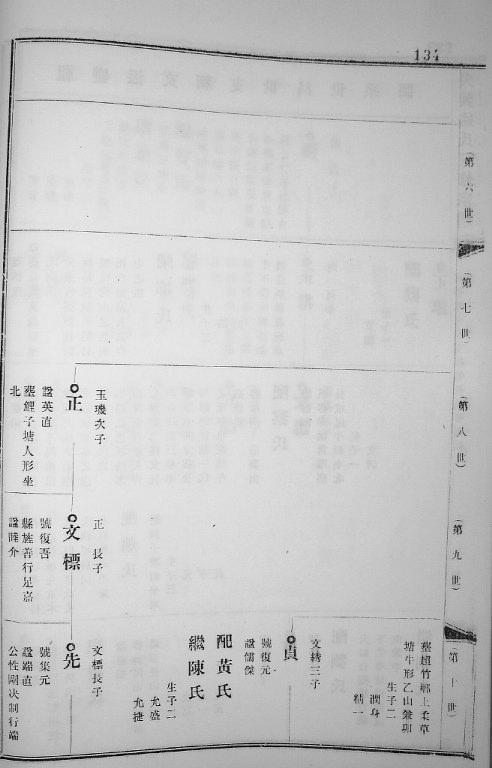 134
(第六世)
(第七世)
(第八世)
(第九世)
(第十世)
玉璣次子
正
諡英直
塟鯉子塘人形坐
北
正 長子
文標
號復吾
縣旌善行足嘉
諡睦介
塟超竹鄉上柔草
塘牛形乙山兼卯
生子二
潤身
精一
文綉三子
貞
號復元
諡儒傑
配黃氏
繼陳氏
生子二
允盛
允捷
文標長子
先
號集元
諡端直
公性剛决制行端